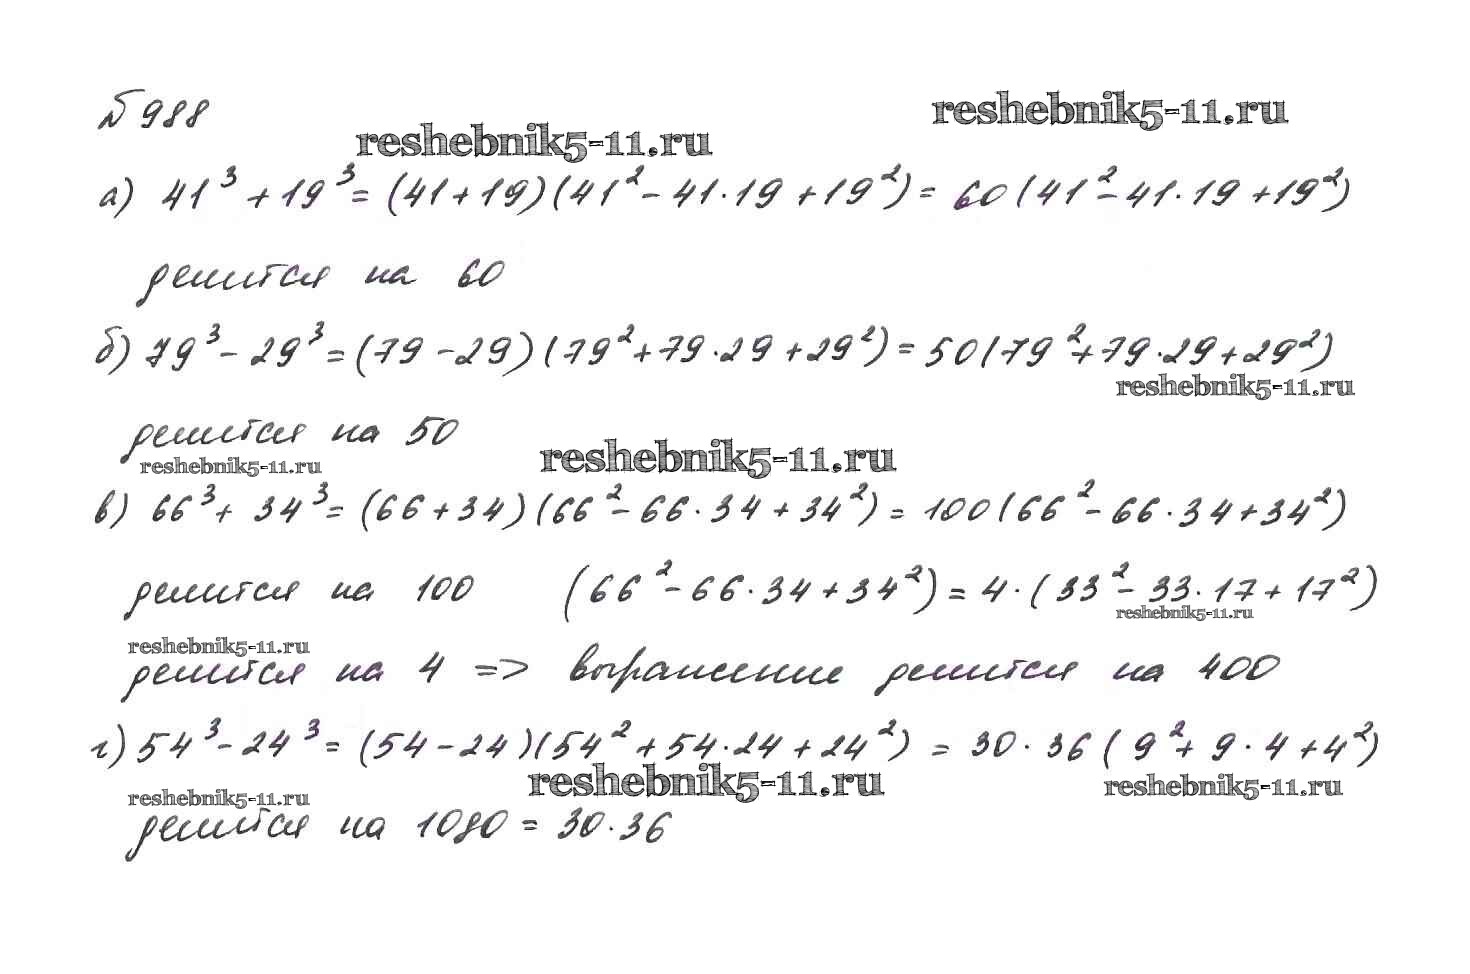 № 988
reshebnik5-11.ru
reshebnik5-11.ru
а) 41³ + 19³ = (41 + 19)(41² - 41·19 + 19²) = 60(41² - 41·19 + 19²)
делится на 60
б) 79³ - 29³ = (79 - 29)(79² + 79·29 + 29²) = 50(79² + 79·29 + 29²)
reshebnik5-11.ru
делится на 50
reshebnik5-11.ru
reshebnik5-11.ru
в) 66³ + 34³ = (66 + 34)(66² - 66·34 + 34²) = 100(66² - 66·34 + 34²)
делится на 100 (66² - 66·34 + 34²) = 4·(33² - 33·17 + 17²)
reshebnik5-11.ru
reshebnik5-11.ru
делится на 4 => выражение делится на 400
г) 54³ - 24³ = (54 - 24)(54² + 54·24 + 24²) = 30·36(9² + 9·4 + 4²)
reshebnik5-11.ru
reshebnik5-11.ru
reshebnik5-11.ru
делится на 1080 = 30·36